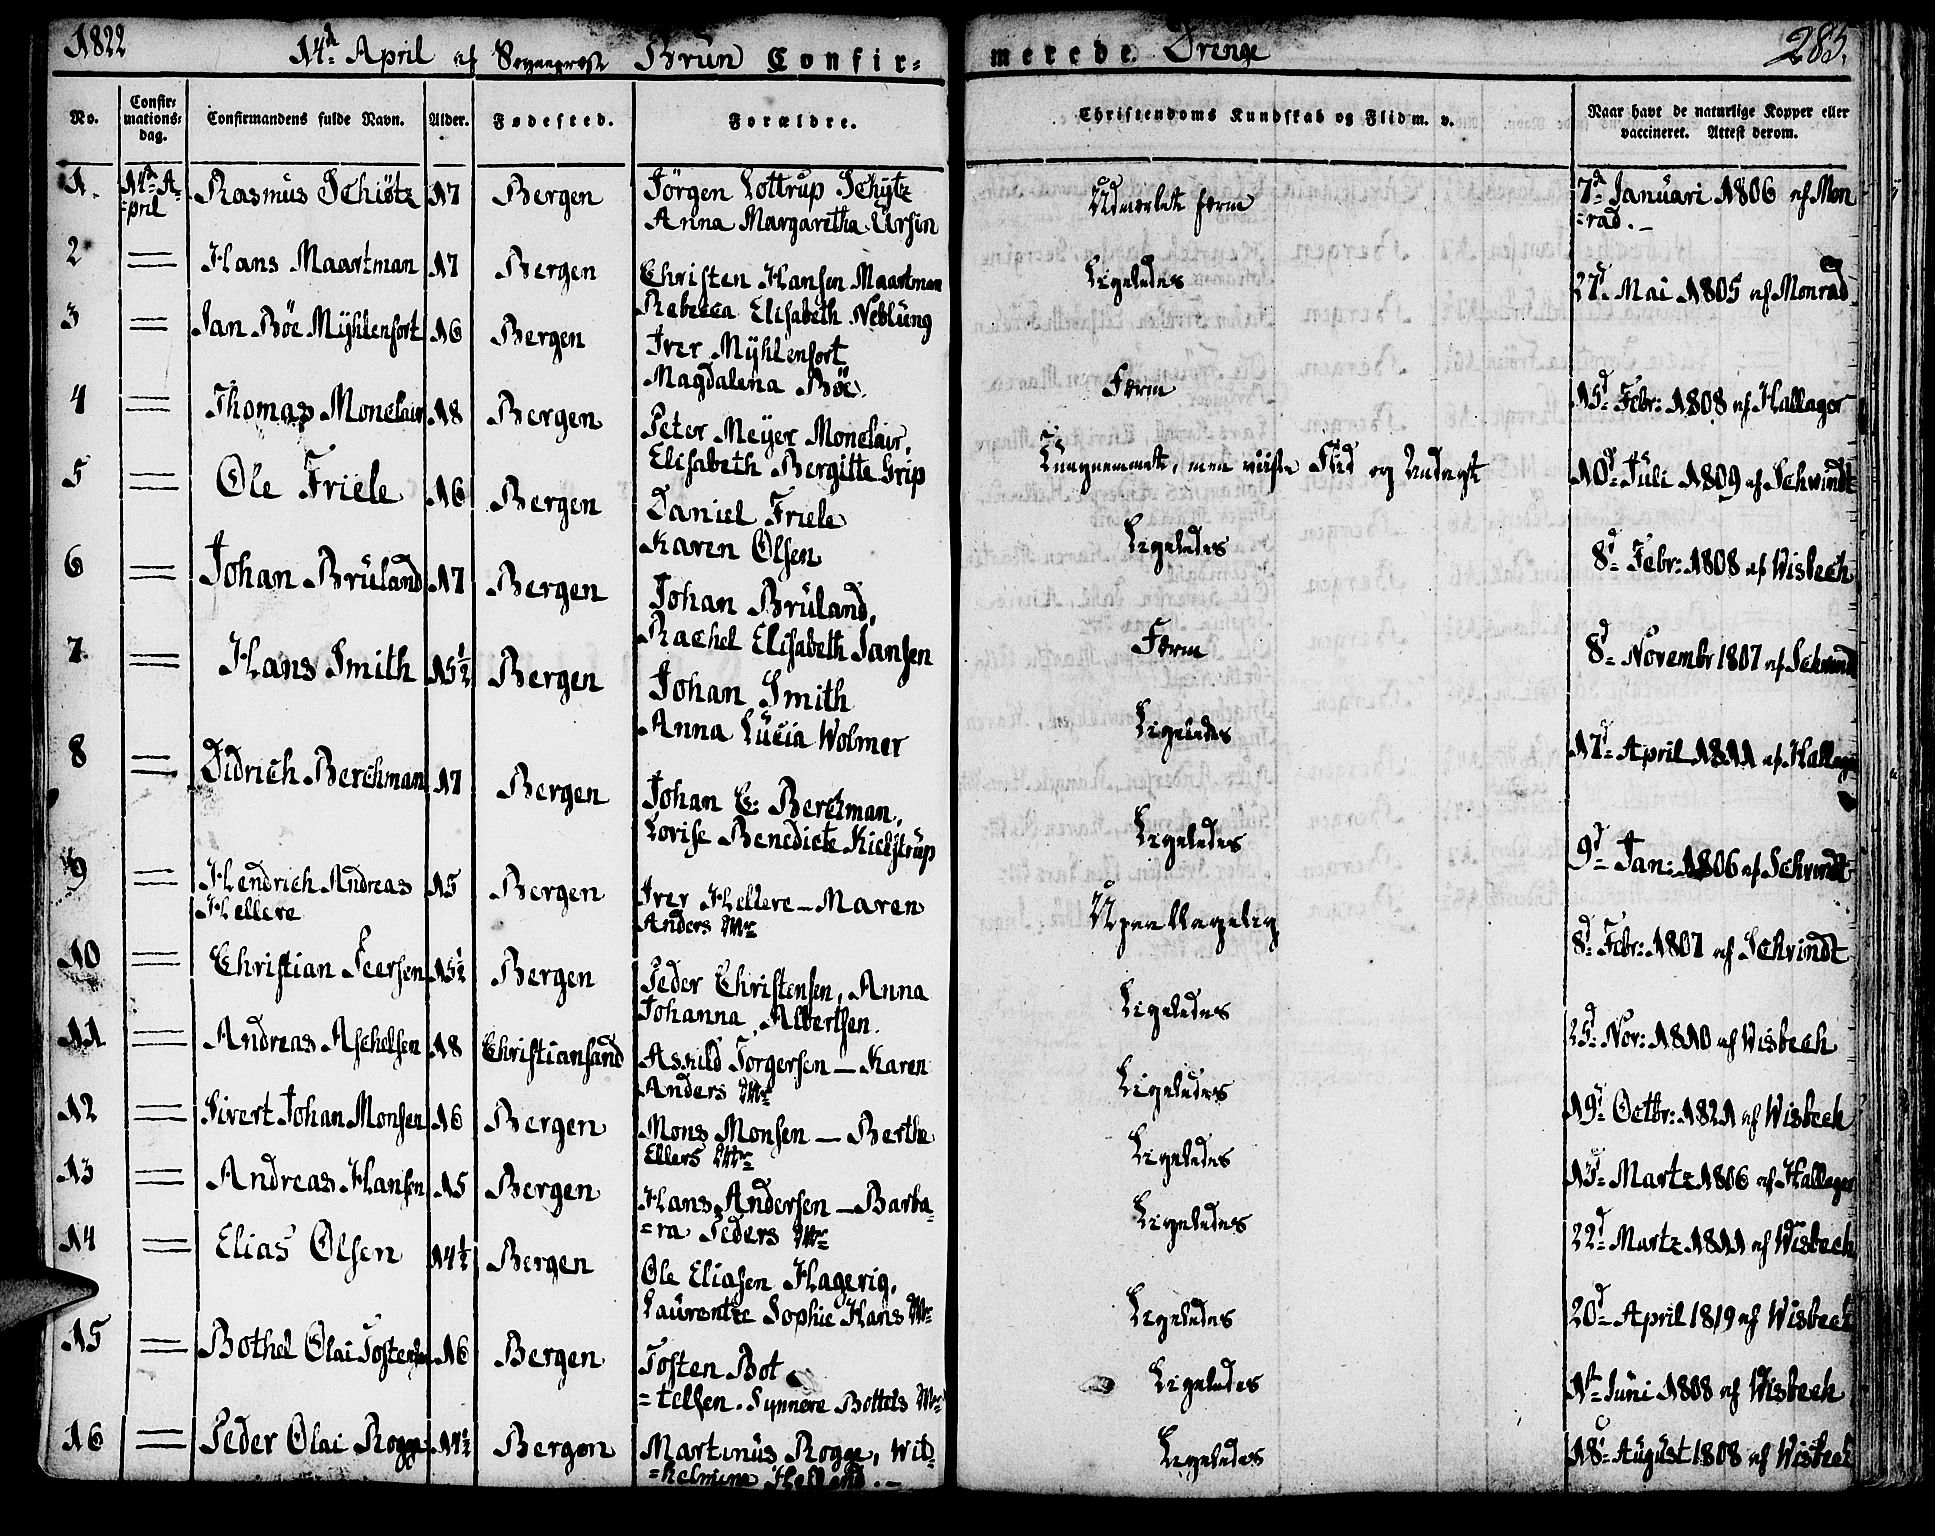 1822 14d April af Sogneprest Brun Confir-
merede Drenge 285.
No. Confir-mations-dag. Confirmandens fulde Navn. Alder. Fødested. Forældre.
Christendoms Kundskab og Flid m. v. Naar havt de naturlige Kopper eller vaccineret. Attest derom.
1. 14d A- Rasmus Schiøtz 17 Bergen Jörgen Lottrup Schytz
=pril Anna Margaretha Ursin
Udmerket from 7d Januari 1806 af Mon
=rad.
2 = Hans Maartman 17 Bergen Christen Hansen Maartman
Rebecca Elisabeth Neblung
Ligeledes 27d Mai 1805 af Monrad
3 = Jan Böe Mÿhlenfort 16 Bergen Iver Mÿhlenfort
Magdalena Böe.
From 15d Febr: 1808 af Hallager
4 = Thomas Monclair 18 Bergen Peter Meyer Monclair,
Elisabeth Bergitte Grip
Tungnemmet, men viiste Flid og Andagt 10d Juli 1809 af Schwindt
5 = Ole Friele 16 Bergen Daniel Friele
Karen Olsen
Ligeledes 8d Febr: 1808 af Wisbech
6 = Johan Brüland 17 Bergen Johan Brüland,
Rachel Elisabeth Jansen
From 8d Novembr 1807 af Schwind
7. = Hans Smith 15½ Bergen Johan Smith
Anna Lucia Wolmer
Ligeledes 17d April 1811 af Hallage
8 = Didrich Berchman 17 Bergen Johan E: Berchman,
Lovise Benedicte Kielstrup
Ligeledes 9d Jan: 1806 af Schvindt
9 = Hendrich Andreas 15 Bergen Iver Hellere - Maren
Hellere Anders Mr
Upaaklagelig 8d Febr: 1807 af Schvindt
10 = Christian Peersen 15½ Bergen Peder Christensen, Anna
Johanna Albertsen.
Ligeledes 25d Nov: 1810 af Wisbech
11 = Andreas Aschelsen 18 Christiansand Askild Torgersen - Karen
Anders Mr
Ligeledes 19d Octbr: 1821 af Wisbech
12 = Sivert Johan Monsen 16 Bergen Mons Monsen - Berthe
Ellers Mr
Ligeledes 13d Martz 1806 af Hallager
13 = Andreas Hansen 15 Bergen Hans Andersen - Barba=
=ra Peders Mr
Ligeledes 22d Martz 1811 af Wisbech
14 = Elias Olsen 14½ Bergen Ole Eliasen Hagerig,
Laurentze Sophie Hans Mr
Ligeledes 20d April 1819 af Wisbech
15 = Bothel Olai Tostensen 16 Bergen Tosten Bot
=telsen. Synnere Bottels Mr
Ligeledes 1te Juni 1808 af Wisbech
16 = Peder Olai Rogge 14½ Bergen Martinus Rogge, Wil=
=helmine
Ligeledes 18d August 1808 af Wisbech